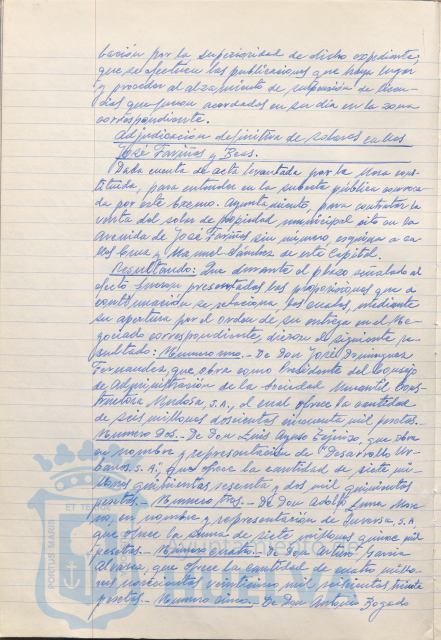 bación por la superioridad de dicho expediente,
que se efectuen las publicaciones que haya lugar
y proceder al alzamiento de suspensión de licen-
cias que fueron acordadas en su día en la zona
correspondiente.
Adjudicación definitiva de solares en las
José Fariñas y Beas.
Dada cuenta de acta levantada por la Mesa cons-
tituida, para entender en la subasta pública convoca-
da por este Excmo. Ayuntamiento, para contratar la
venta del solar de propiedad municipal sito en la
Avenida de José Fariñas sin número, esquina a ca-
lles Cruz y Manuel Sánchez de esta Capital.
Resultando: Que durante el plazo señalado al
efecto fueron presentadas las proposiciones que a
continuación se relaciona, las cuales, mediante
su apertura por el orden de su entrega en el Ne-
gociado correspondiente, dieron el siguiente re-
sultado: Número uno.- De Don José Domínguez
Fernández, que obra como Presidente del Consejo
de Administración de la Sociedad Mercantil Cons-
tructora Mendosa, S.A., el cual ofrece la cantidad
de seis millones doscientas cincuenta mil pesetas.-
Número Dos.- De Don Luis, que obra
en nombre y representación de Desarrollo Ur-
banos, S.A., que ofrece la cantidad de siete mi-
llones quinientas sesenta y dos mil quinientas
pesetas.- Número Tres.- De Don Adolfo
en nombre y representación de S.A.
que ofrece la suma de siete millones quince mil
pesetas.- Número cuatro.- De Don Arturo García
que ofrece la cantidad de cuatro millo-
nes novecientas veinticinco mil seiscientas treinta
pesetas.- Número cinco.- De Don Antonio Bogado
PORTUS MARIS
ET TERRAE
HUELVA